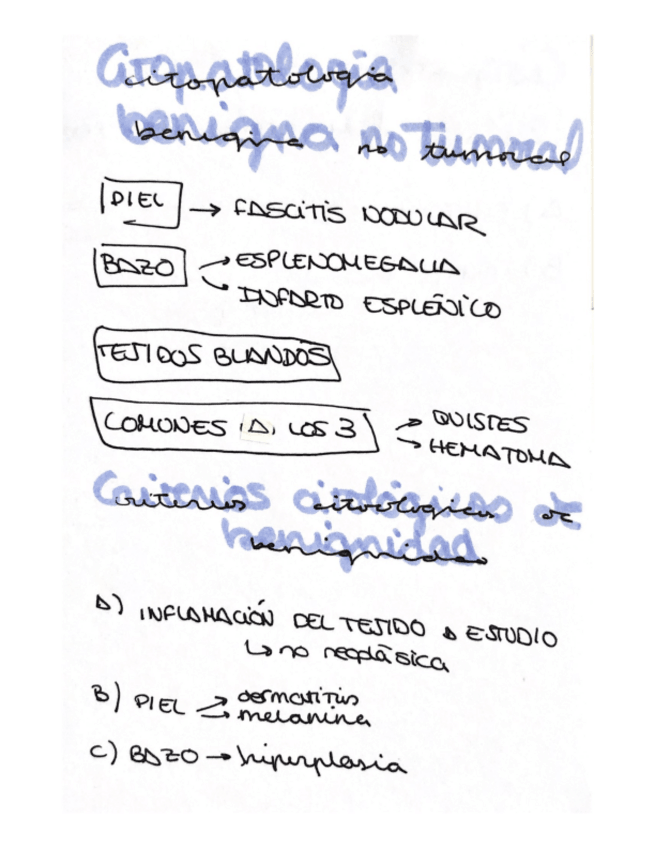 citopatología
benigna no tumoral
PIEL → FASCITIS NODULAR
BAZO → ESPLENOMEGALIA
→ INFARTO ESPLÉNICO
TEJIDOS BLANDOS
COMUNES A LOS 3 → QUISTES
→ HEMATOMA
Criterios citológicos de
benignidad
A) INFLAMACIÓN DEL TEJIDO A ESTUDIO
↳ no neoplásica
B) PIEL → dermatitis
→ melanina
C) BAZO → hiperplasia